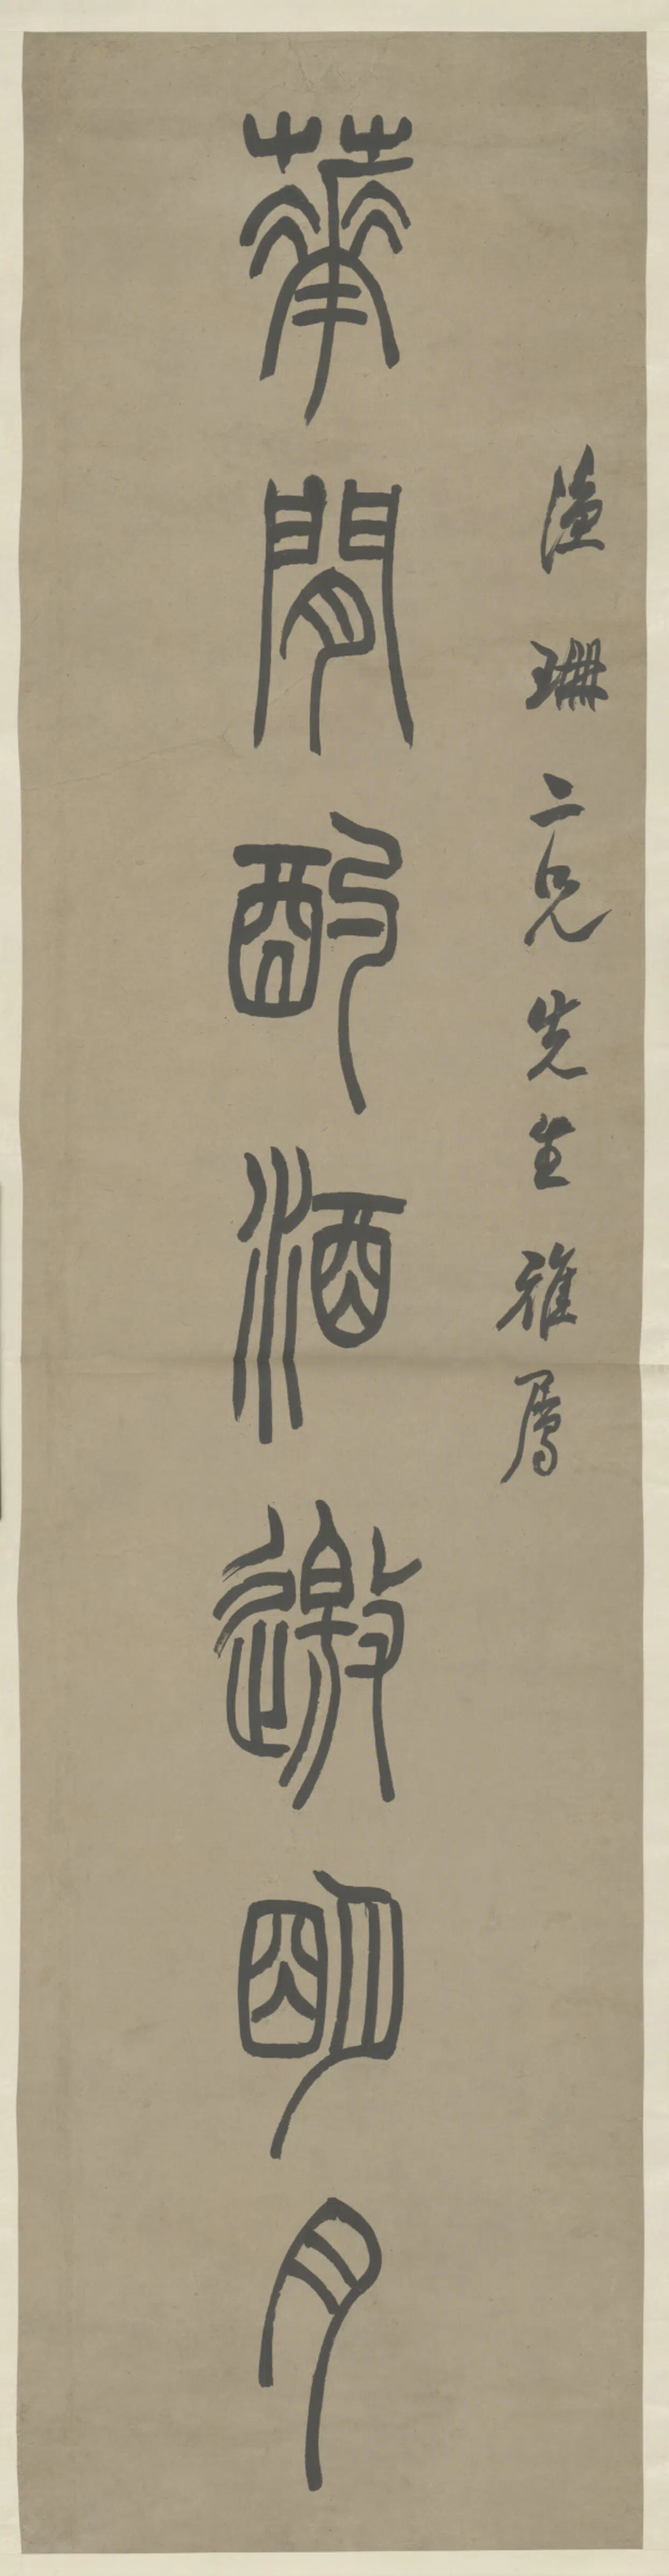 珊二兄先生雅屬
華閒酌酒邀明月